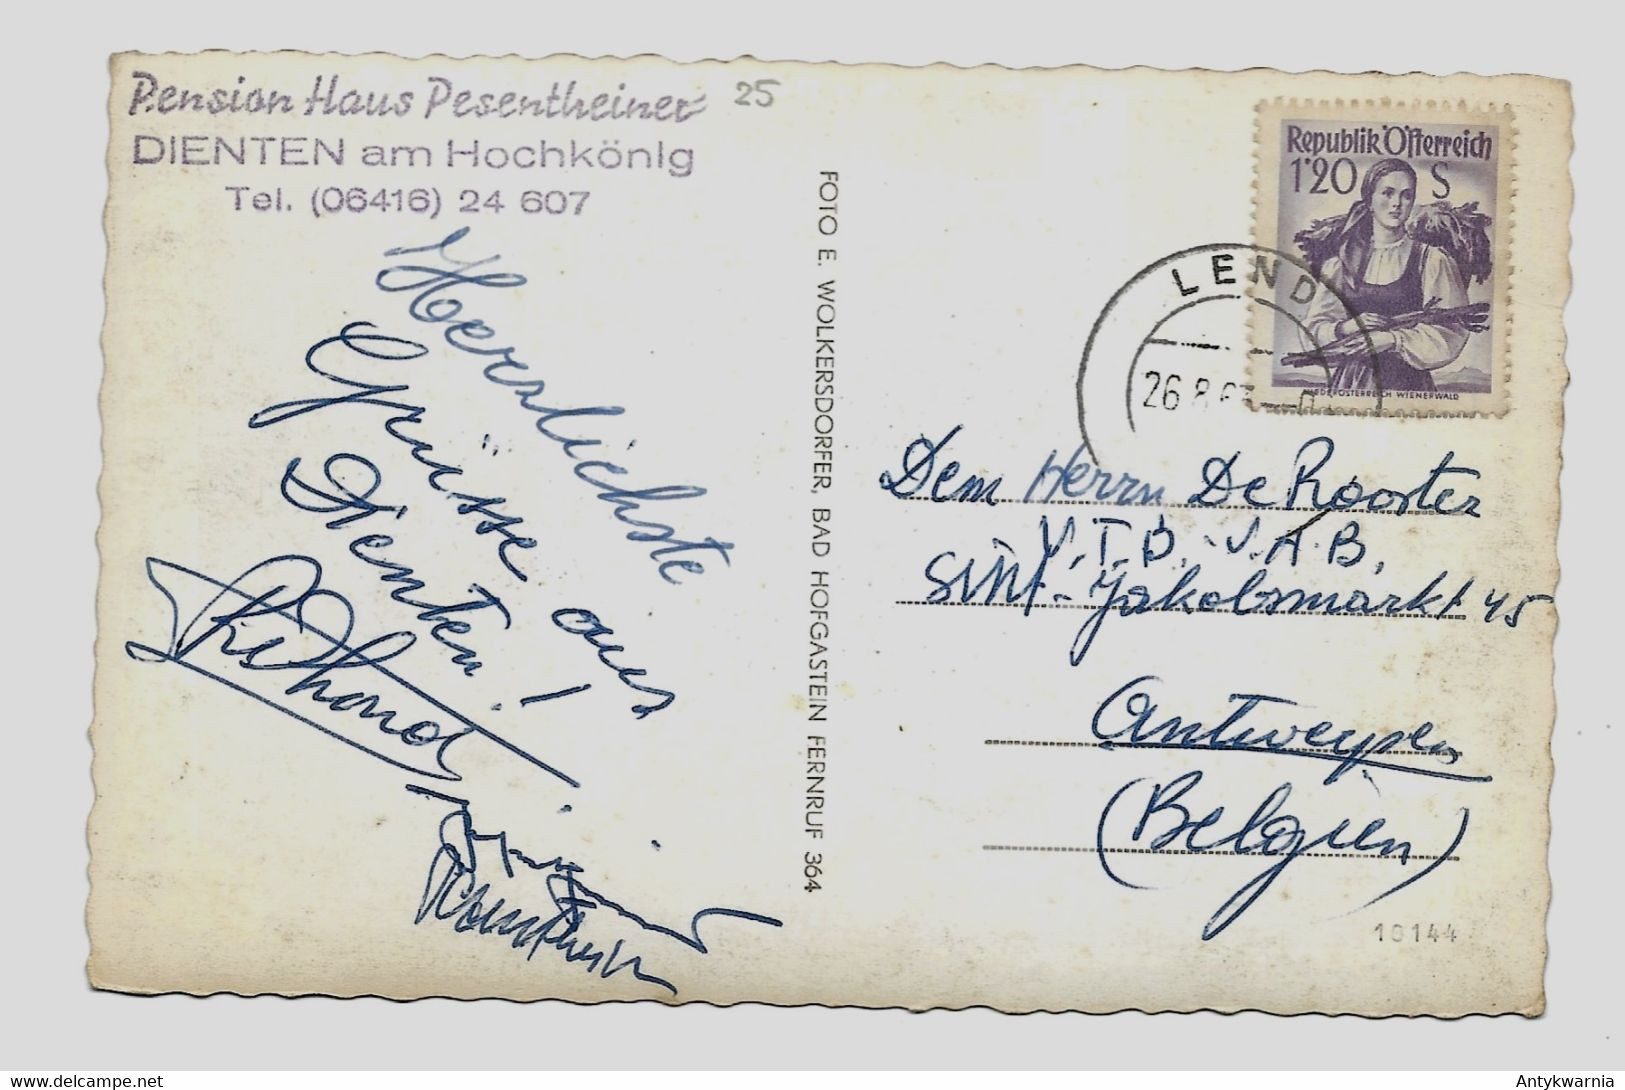 Pension Haus Pesentheiner
DIENTEN am Hochkönig
Tel. (06416) 24 607
25
Herzlichste
Grüsse aus
Dienten!
FOTO E. WOLKERSDORFER, BAD HOFGASTEIN FERNRUF 364
Republik Österreich
1'20 S
NIEDERÖSTERREICH WIENERWALD
LEND
26.8.63
Dem Herrn De Rooster
V.T.B. - V.A.B.
Sint-Jakobsmarkt 45
Antwerpen
(Belgien)
10144
https://www.delcampe.net
Antykwarnia